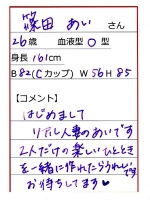 篠田 あい さん
26歳 血液型 O型
身長 161cm
B 82(Cカップ) W 56 H 85
【コメント】
はじめまして
リアル人妻のあいです
2人だけの楽しいひととき
を一緒に作れたらうれしいです
お待ちしてます♥